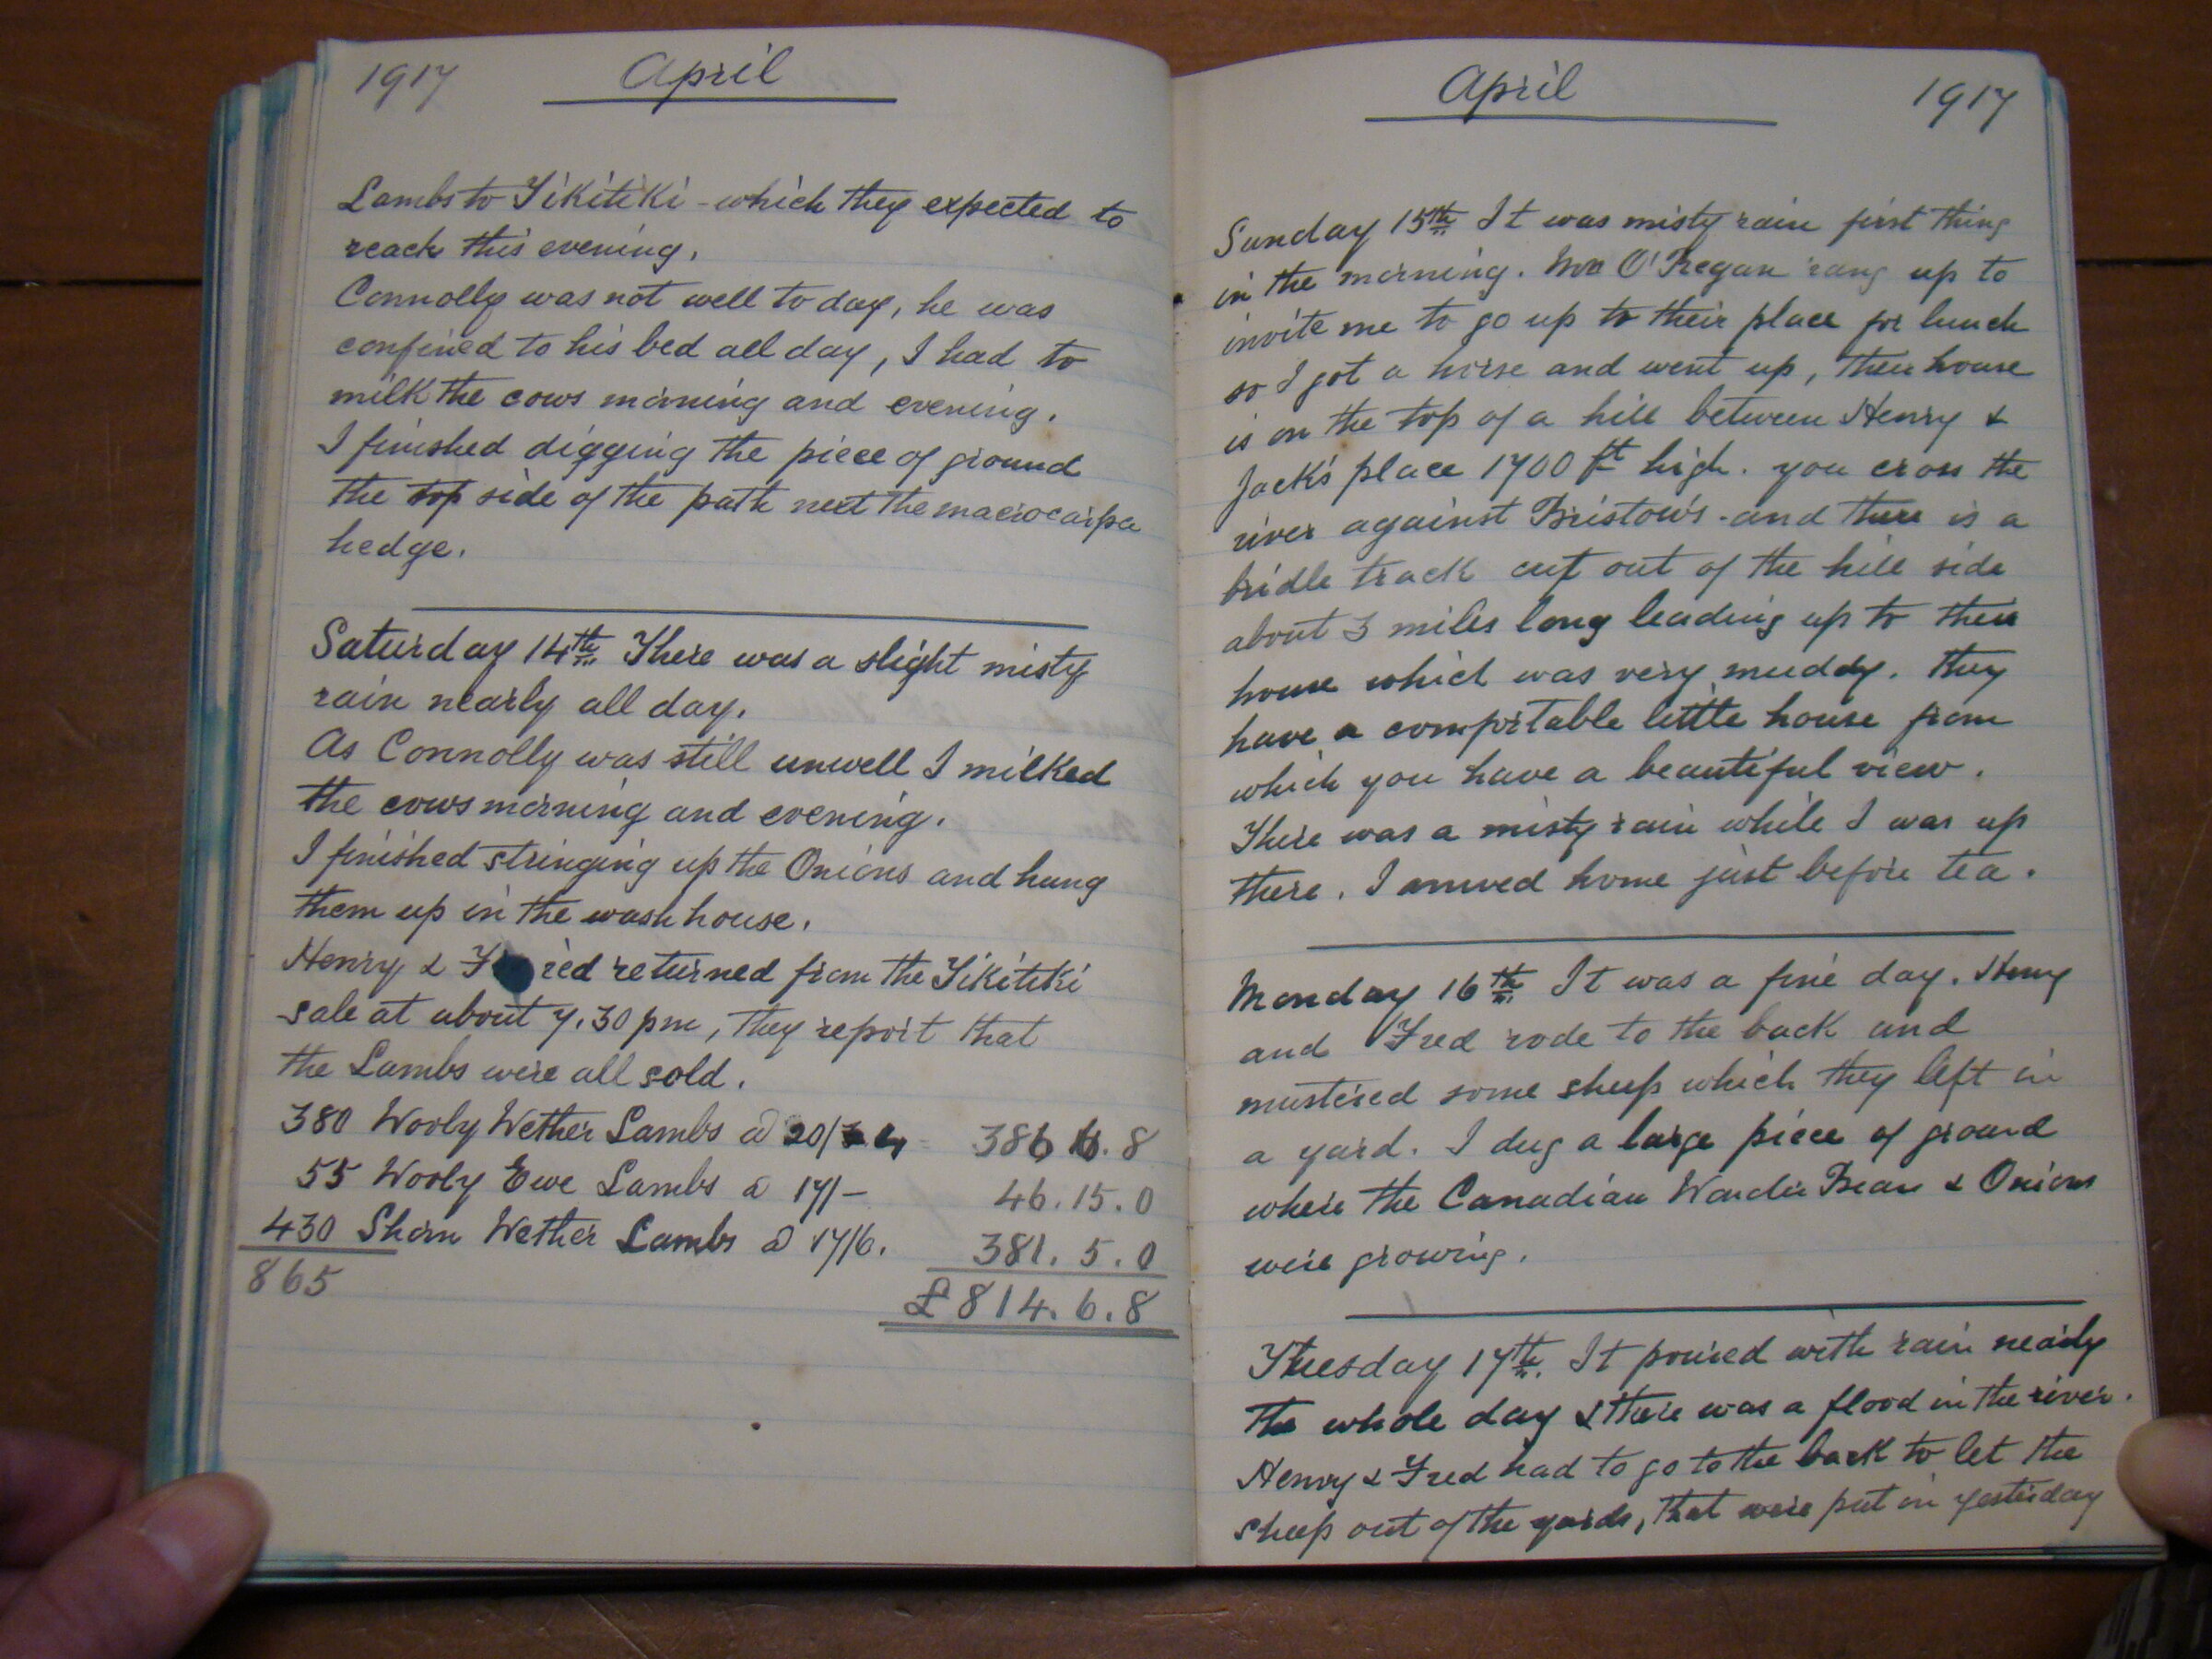 1917 April
Lambs to Tikitiki - which they expected to
reach this evening.
Connolly was not well to day, he was
confined to his bed all day, I had to
milk the cows morning and evening.
I finished digging the piece of ground
the top side of the path next the macrocarpa
hedge.
Saturday 14th There was a slight misty
rain nearly all day.
As Connolly was still unwell I milked
the cows morning and evening.
I finished stringing up the Onions and hung
them up in the wash house.
Henry & Fred returned from the Tikitiki
sale at about 7.30 pm, they report that
the Lambs were all sold.
380 Wooly Wether Lambs @ 20/4 = 386.6.8
55 Wooly Ewe Lambs @ 17/- 46.15.0
430 Shorn Wether Lambs @ 17/6. 381.5.0
865 £814.6.8
April 1917
Sunday 15th It was misty rain first thing
in the morning. O'Regan rang up to
invite me to go up to their place for lunch
so I got a horse and went up, their house
is on the top of a hill between Henry &
Jack's place 1700 ft high. you cross the
river against Bristow's - and there is a
bridle track cut out of the hill side
about 3 miles long leading up to their
house which was very muddy. They
have a comfortable little house from
which you have a beautiful view.
There was a misty rain while I was up
there. I arrived home just before tea.
Monday 16th It was a fine day. Henry
and Fred rode to the back and
mustered some sheep which they left in
a yard. I dug a large piece of ground
where the Canadian Wonder Bean & Onions
were growing.
Tuesday 17th. It poured with rain nearly
the whole day & there was a flood in the river.
Henry & Fred had to go to the back to let the
sheep out of the yards, that were put in yesterday